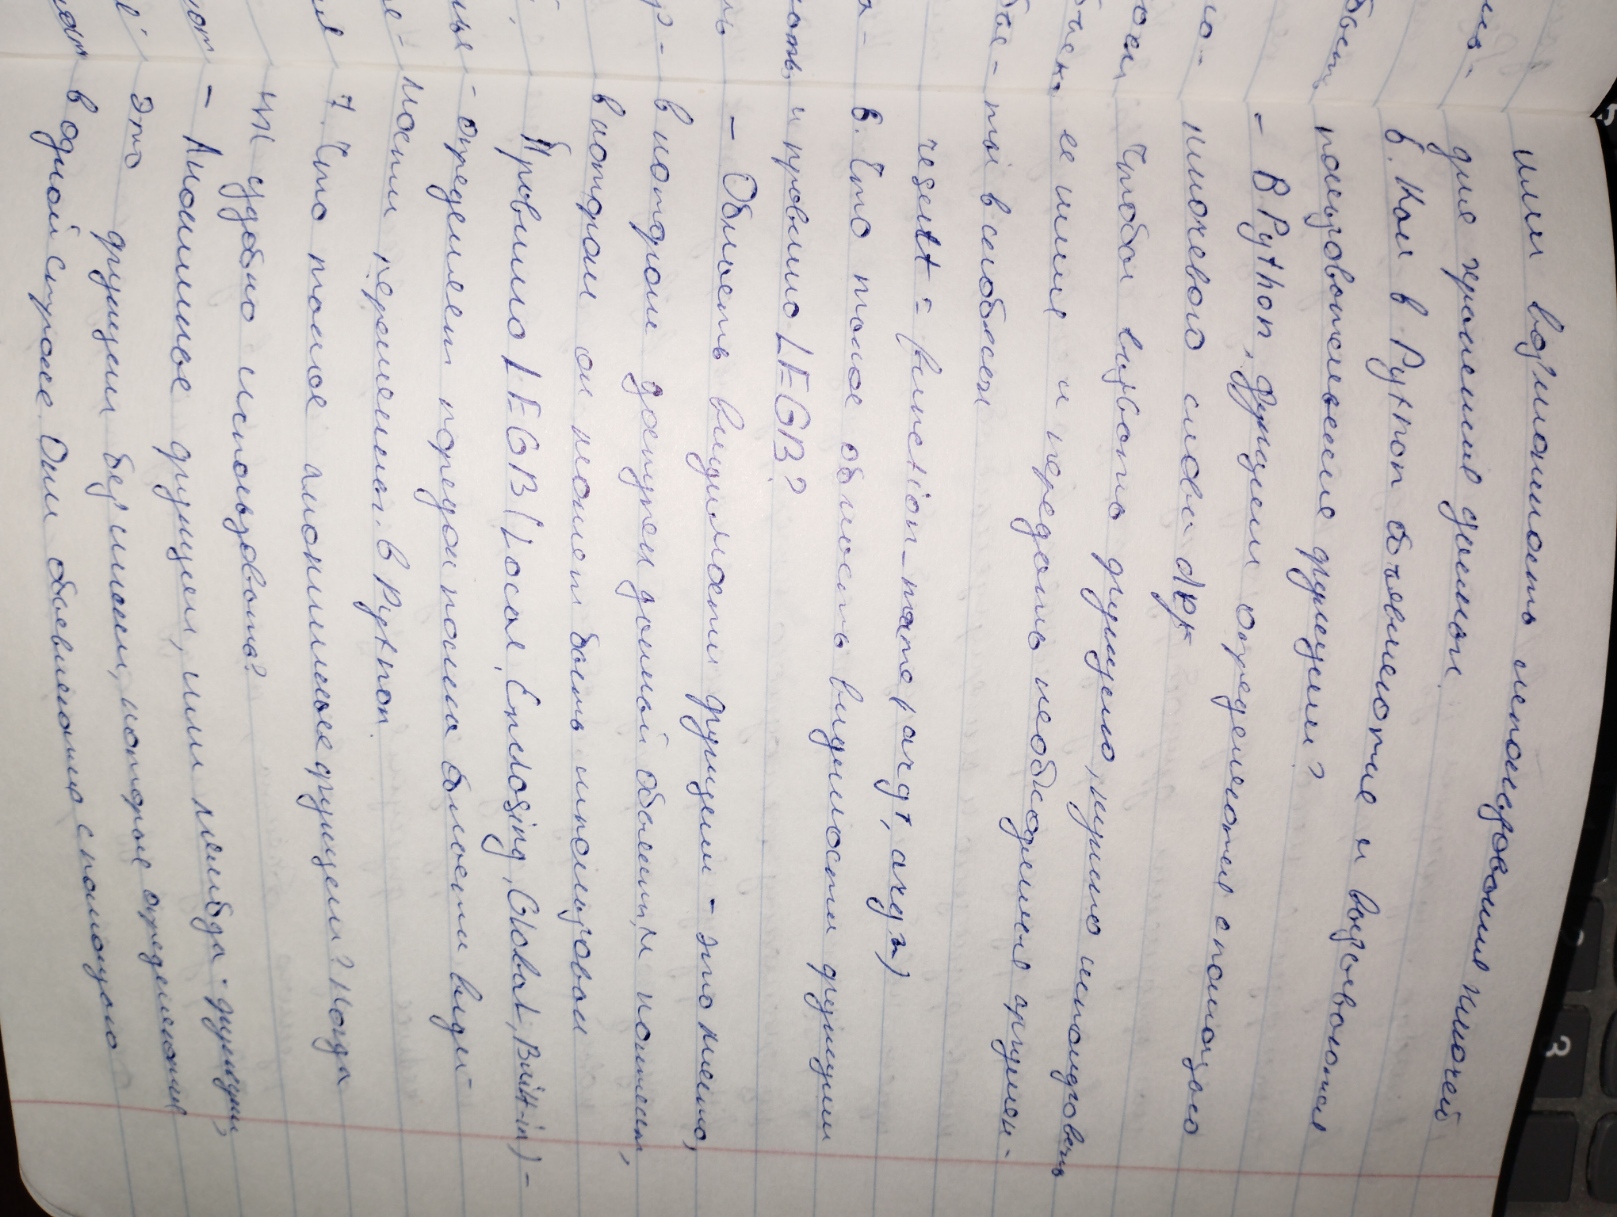 или возможность использования ключей
для хранения данных.
6. Как в Python объявляются и вызываются
пользовательские функции?
- В Python, функции определяются с помощью
ключевого слова def
Чтобы вызвать функцию, нужно использовать
ее имя и передать необходимые аргумен-
ты в скобках
result = function_name(arg1, arg2)
6. Что такое область видимости функции
и правило LEGB?
- Область видимости функции - это место,
в котором доступен данный объект, и контекст,
в котором он может быть использован
Правило LEGB (Local, Enclosing, Global, Built-in) -
- определяет порядок поиска области види-
мости переменных в Python.
7. Что такое анонимные функции? Когда
их удобно использовать?
- Анонимные функции, или лямбда-функции,
это функции без имени, которые определяются
в одной строке. Они объявляются с помощью